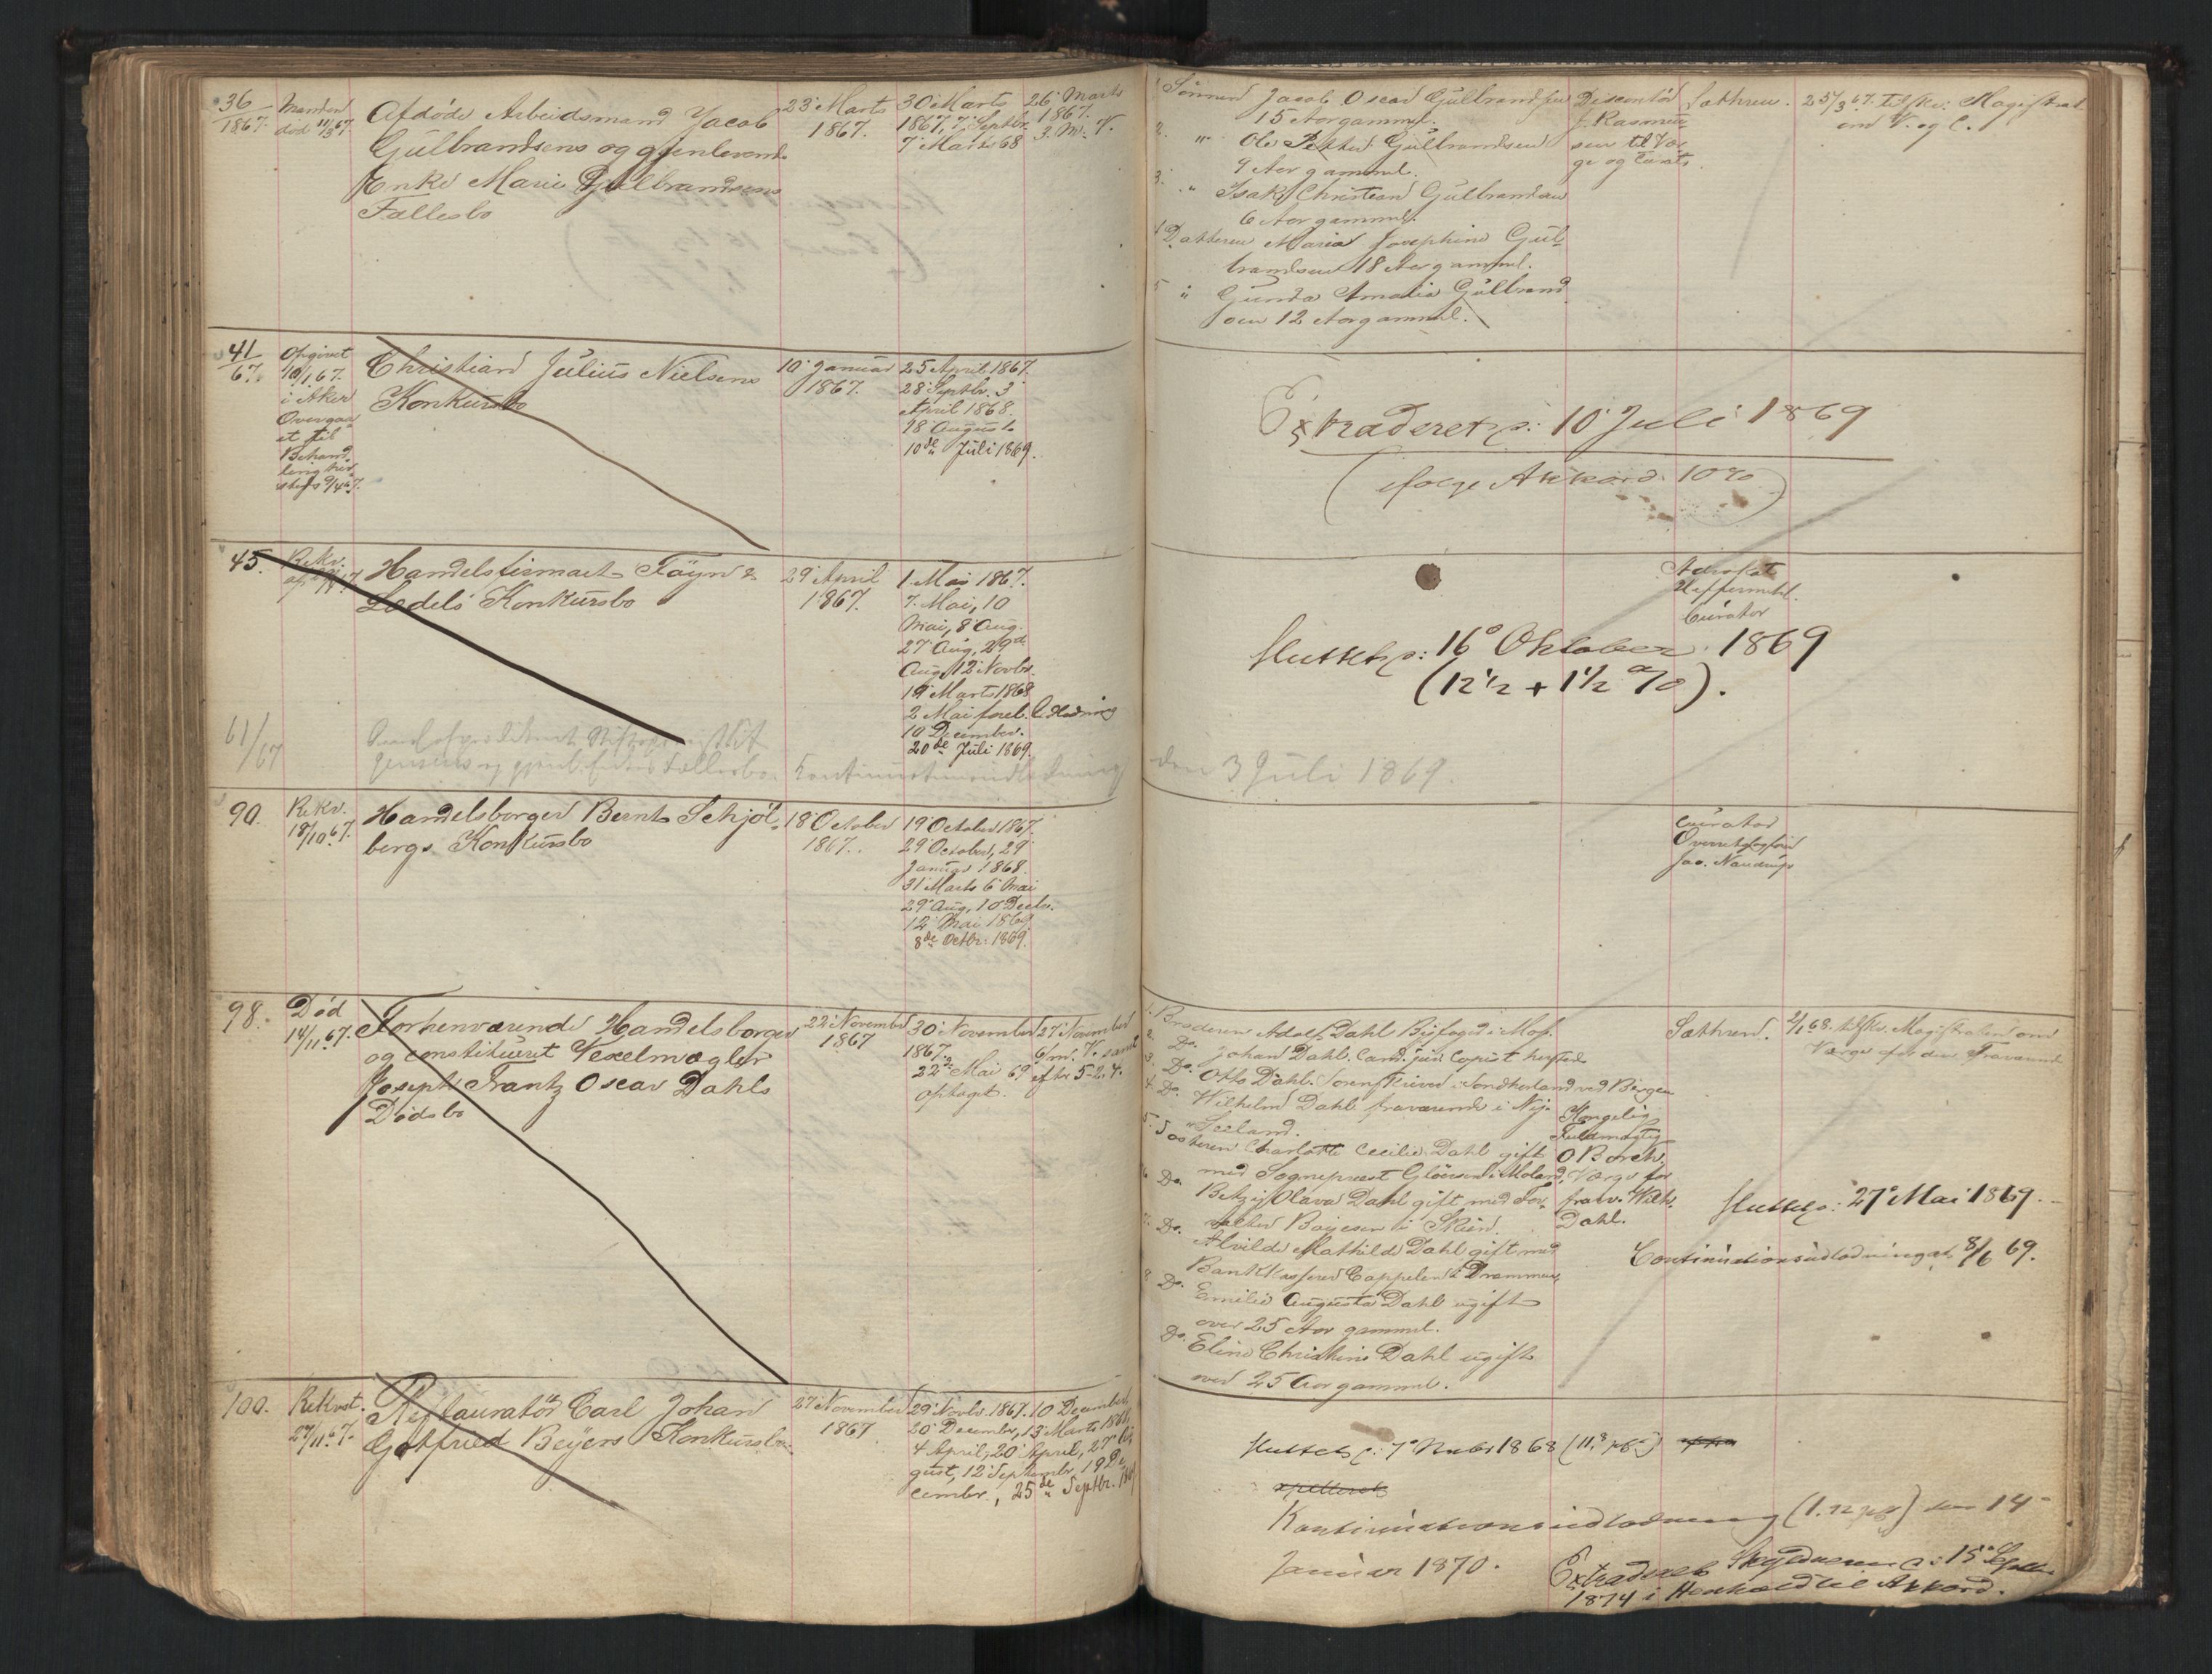 36
1867.
Manden
død 11/3 67.
Afdøde Arbeidsmand Jacob
Gulbrandsens og gjenlevende
Enke Marie Gulbrandsens
Fællesbo
23' Marts
1867.
30' Marts
1867, 7' Septbr.
7 Marts 68
26' Marts
1867.
3. M. V.
1. Sønnen Jacob Oscar Gulbrandsen
15 Aar gammel.
2. " Ole Petter Gulbrandsen
9 Aar gammel.
3. " Isak Christian Gulbrandsen
6 Aar gammel.
Datteren Maria Josephine Gul
brandsen 18 Aar gammel.
5 " Gunda Amalia Gulbrand
sen 12 Aar gammel.
Rasmus
sen til Vær
ge og Curat.
Sathren.
25/3 67. tilskr. Magistrat.
om V. og C.
41
67.
Opgivet
10/1 67.
i Aker
Overgaa
et til
Behand
ling her
steds 9/4 67.
Christian Julius Nielsens
Konkursbo
10' Januar
1867.
25 April 1867.
28' Septbr. 3'
April 1868.
18 August
10de Juli 1869.
Extraderet p: 10' Juli 1869
(ifølge Akkord. 10%)
45.
Rekv.
Handelsfirmaet Føyn &
Lædels Konkursbo
29' April
1867.
1. Mai 1867.
7. Mai, 10
Mai, 8' Aug.
27' Aug, 29de
Aug, 12' Novbr.
19' Marts 1868
2 Mai forel. Udlodning
10 December.
20de Juli 1869.
Advokat
Heffermehl.
Curator
Sluttet p: 16' Oktober 1869
(12 1/2 + 1 1/2 %).
61/67
gjenl. Enkes Fællesbo. Kontinuationsudlodning
den 3 Juli 1869.
90.
Rekv.
18/10 67.
Handelsborger Bernt Schjøl-
bergs Konkursbo
18' October
1867.
19' October 1867.
29' October, 29'
Januar 1868.
31' Marts 6' Mai
29' Aug, 10 Decbr.
12' Mai 1869.
8de Octbr. 1869.
Curator
Overretssagfører
Jac. Naudrup
98.
Død
14/11 67.
Forhenværende Handelsborger
og constitueret Vexelmægler
Joseph Frantz Oscar Dahls
Dødsbo
22' November
1867
30' November
1867.
22de Mai 69
optaget.
27' November
6/m. V. samt
efter 5-2.4.
1. Broderen Adolf Dahl Byfoged i Mos.
2. Do. Johan Dahl. Cand. jur. Copist hersteds
3. Do. Otto Dahl. Sorenskriver i Søndhorland ved Bergen
4. Do. Wilhelm Dahl fraværende i Ny-
Seeland.
5. Søsteren Charlotte Cecilie Dahl gift
med Sogneprest Gløersen i Moland,
6. Do. Betzy Olava Dahl gift med For-
valter Boyesen i Skien.
7. Do. Alvilde Mathilde Dahl gift med
Bankkasserer Cappelen i Drammen,
8. Do. Emilie Augusta Dahl ugift
over 25 Aar gammel.
Do. Eline Christine Dahl ugift
over 25 Aar gammel.
Kongelig
Fuldmægtig
O Borch.
Værge for
frav. Wilh.
Dahl.
Sathren.
2/1 68. tilskr. Magistraten om
Værge for den Fraværende
Sluttet p: 27' Mai 1869.
Continuationsudlodning af 8/6 69.
100.
Rekvst.
27/11 67.
Restauratør Carl Johan
Gotfried Beyers Konkursbo
27' November
1867
29' Novbr. 1867. 10 December,
20' Decembr, 13' Marts 1868,
4 April, 20' April, 27' Au
gust, 12' Septembr, 19 De
cembr., 25de Septbr. 1869
Sluttet p: 7' Novbr 1868
Kontinuationsudlodning den 14'
Januar 1870.
Extraderet Skyldneren p: 15' Septbr.
1874 i Henhold til Akkord.